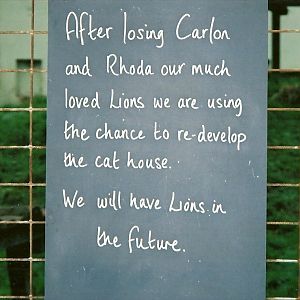 After losing Carlon
and Rhoda our much
loved Lions we are using
the chance to re-develop
the cat house.
We will have Lions in
the future.